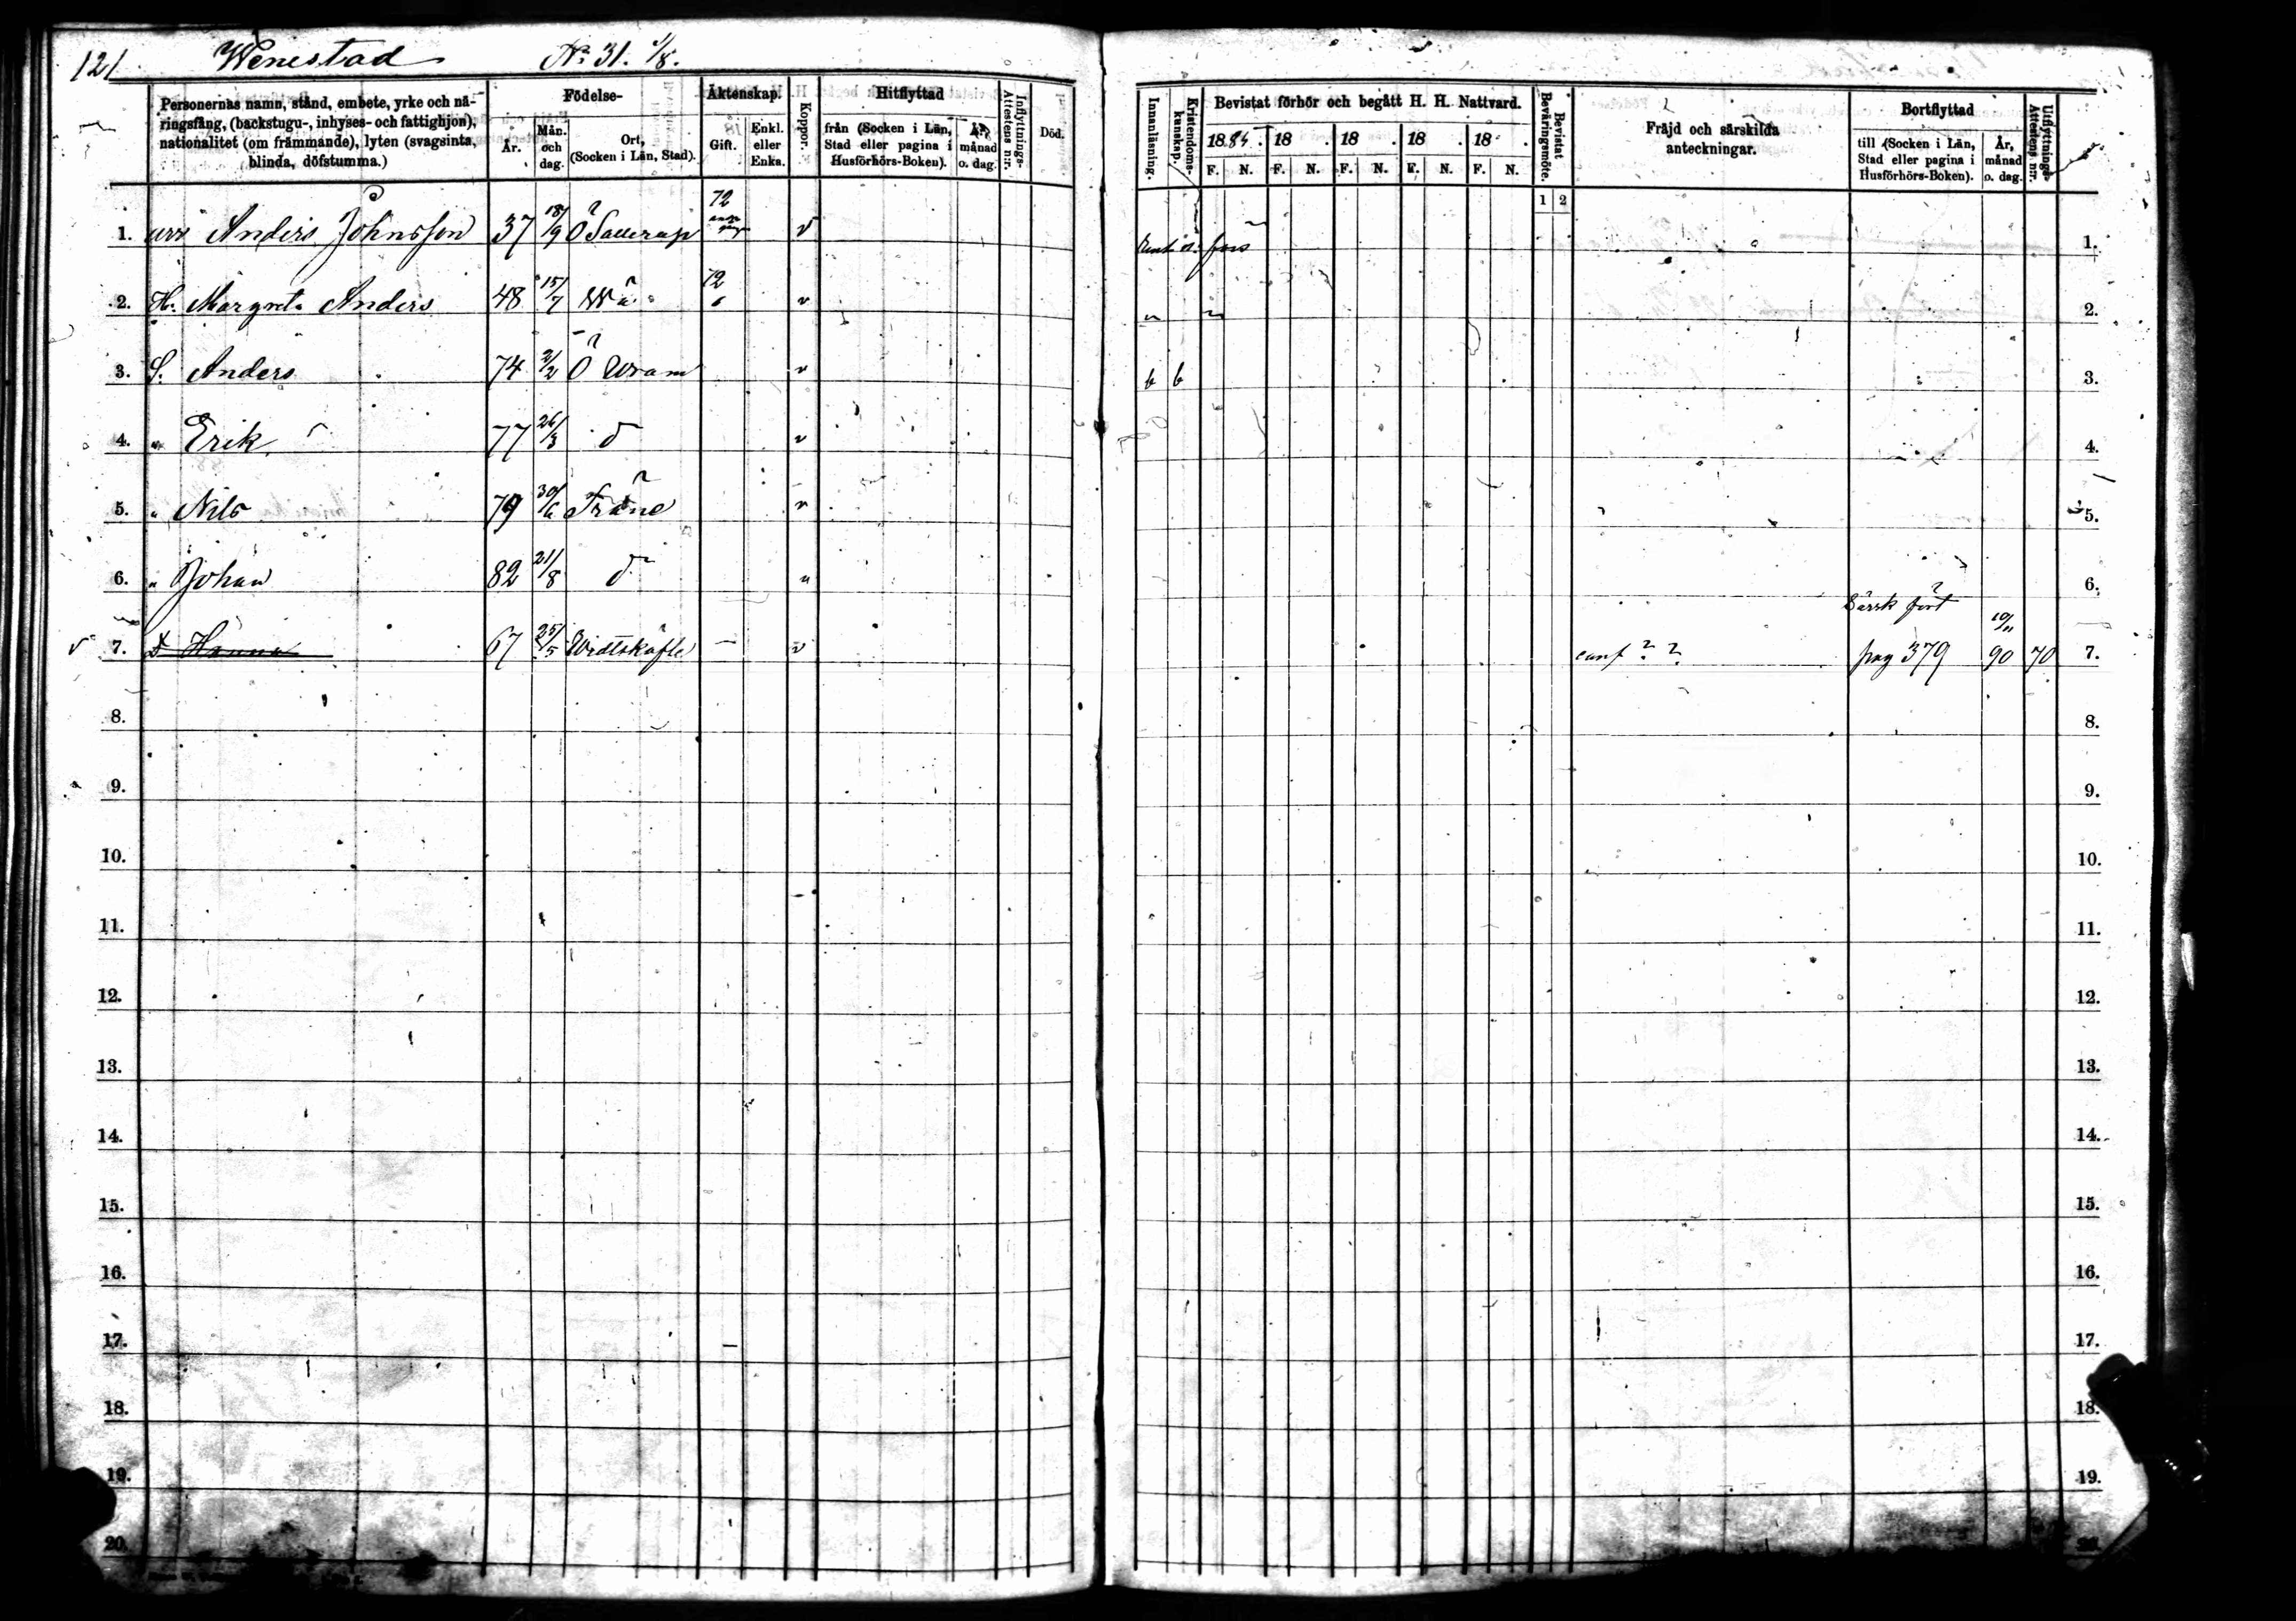 121 Wenestad No 31. 1/8.
Personernas namn, stånd, embete, yrke och nä-
ringsfång, (backstugu-, inhyses- och fattighjon),
nationalitet (om främmande), lyten (svagsinta,
blinda, döfstumma.)
Födelse-
År.
Mån.
och
dag.
Ort,
(Socken i Län, Stad).
Äktenskap.
Gift.
Enkl.
eller
Enka.
Koppor.
Hitflyttad
från (Socken i Län,
Stad eller pagina i
Husförhörs-Boken).
År,
månad
o. dag.
Inflyttnings-
Attestens n:r.
Död.
Innanläsning.
Kristendoms-
kunskap.
Bevistat förhör och begått H. H. Nattvard.
18 . 18 . 18 . 18 . 18 .
F. N. F. N. F. N. F. N. F. N.
Bevistat
Beväringsmöte.
1 2
Fräjd och särskilda
anteckningar.
Bortflyttad
till (Socken i Län,
Stad eller pagina i
Husförhörs-Boken).
År,
månad
o. dag.
Utflyttnings-
Attestens n:r.
1. Anders Johnsson 37 18/9 Ö Sallerup 72 v 1.
2. H. Margreta Anders 48 15/7 Wä 72 v 2.
3. S. Anders 74 2/2 Ö Wram v b b 3.
4. " Erik 77 26/3 d v 4.
5. " Nils 79 30/6 Träne v 5.
6. " Johan 82 21/8 d " 6.
7. Hanna 67 25/5 Widtsköfle — v conf ? ? Särsk fört pag 379 10/11 90 70 7.
8. 8.
9. 9.
10. 10.
11. 11.
12. 12.
13. 13.
14. 14.
15. 15.
16. 16.
17. 17.
18. 18.
19. 19.
20.